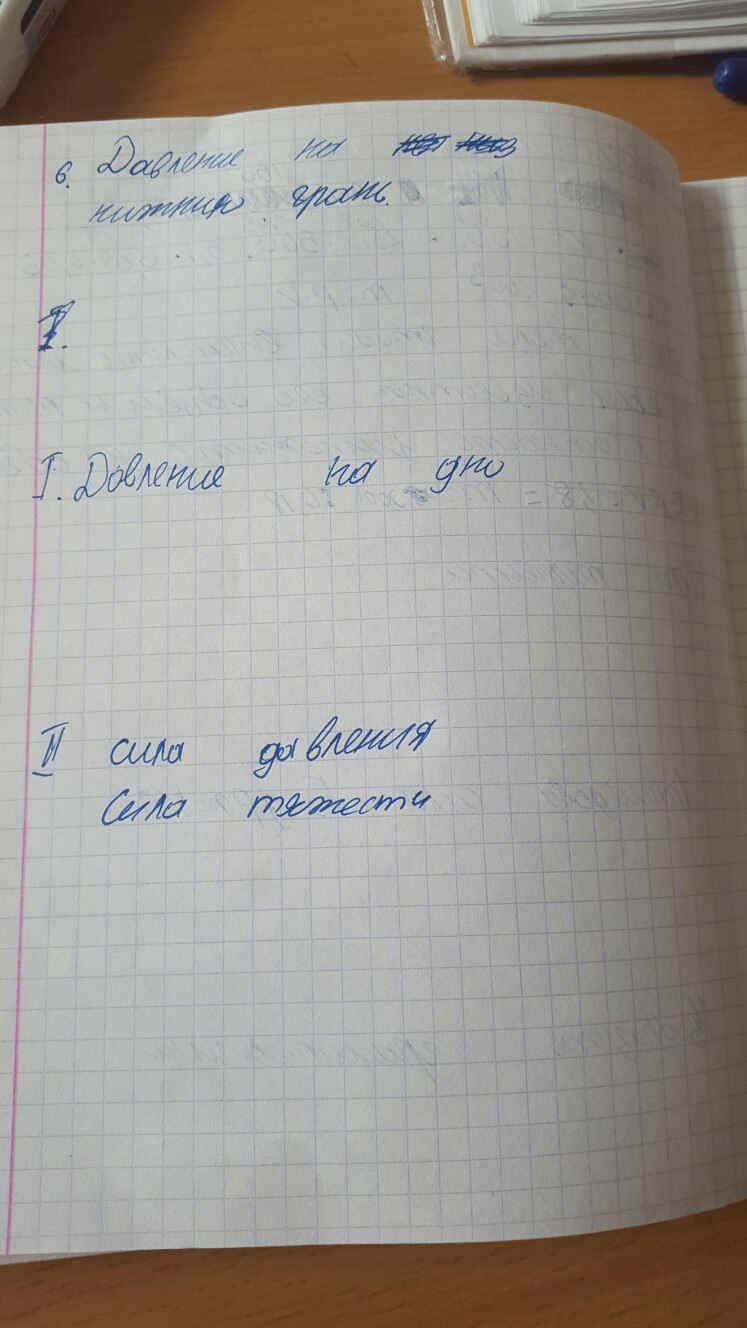 6. Давление на
нижнюю грань.
I.
I. Довление на дно
II сила давления
Сила тяжести